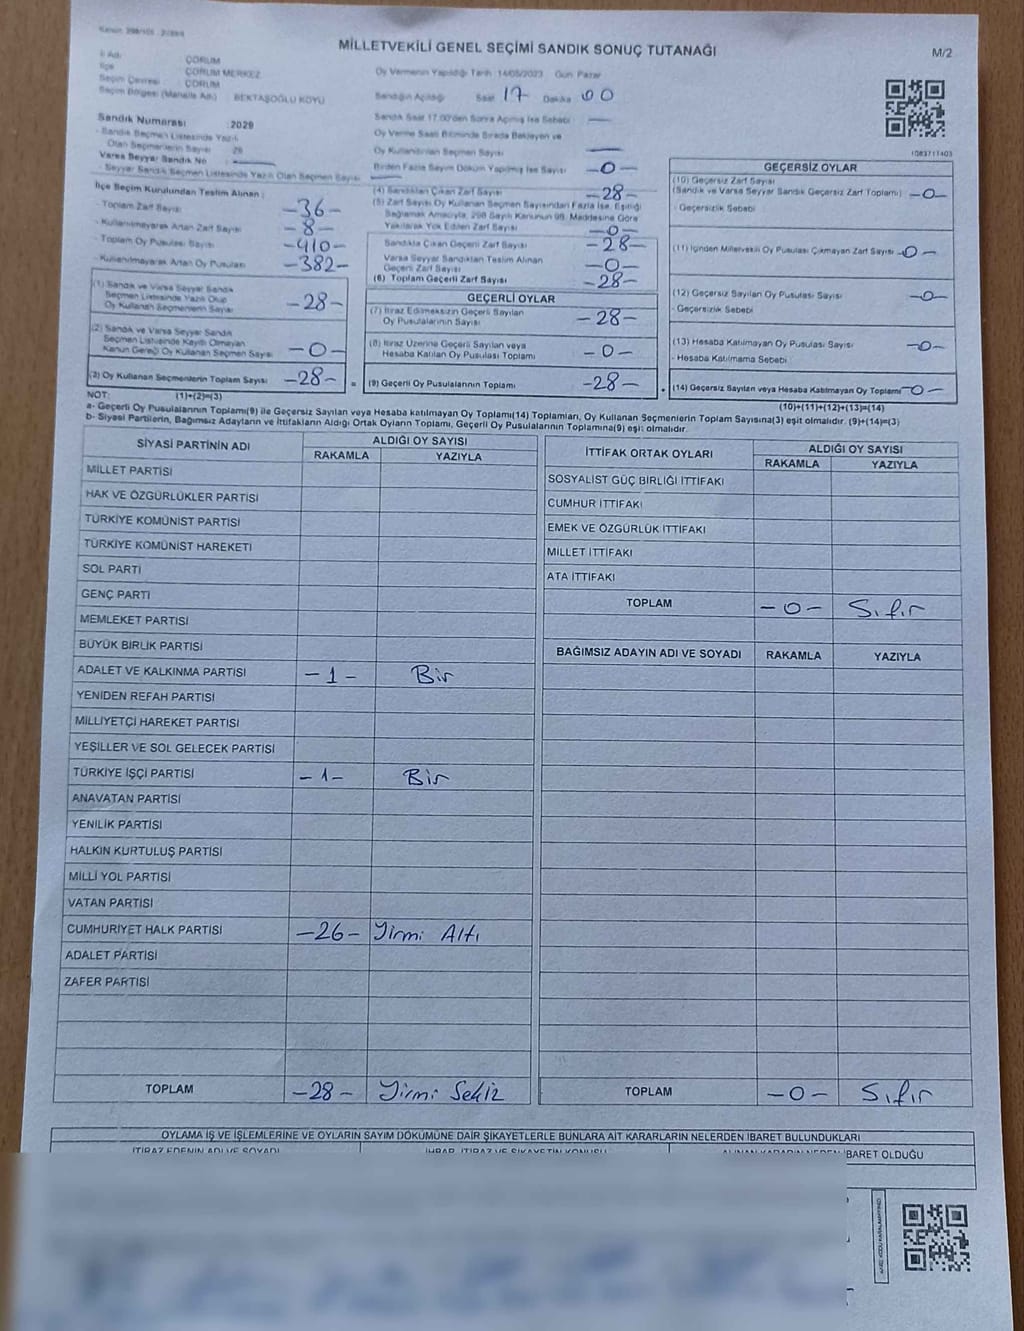 MİLLETVEKİLİ GENEL SEÇİMİ SANDIK SONUÇ TUTANAĞI
M/2
İl Adı : ÇORUM
İlçe : ÇORUM MERKEZ
Seçim Çevresi : ÇORUM
Seçim Bölgesi (Mahalle Adı) : BEKTAŞOĞLU KÖYÜ
Oy Vermenin Yapıldığı Tarih 14/05/2023 Gün Pazar
Sandığın Açıldığı Saat 17 Dakika 00
Sandık Numarası : 2029
- Sandık Seçmen Listesinde Yazılı
Olan Seçmenlerin Sayısı 28
Varsa Seyyar Sandık No :
- Seyyar Sandık Seçmen Listesinde Yazılı Olan Seçmen Sayısı
Sandık Saat 17.00'den Sonra Açılmış İse Sebebi
Oy Verme Saati Bitiminde Sırada Bekleyen ve
Oy Kullandırılan Seçmen Sayısı
Birden Fazla Sayım Döküm Yapılmış İse Sayısı -0-
1083711403
İlçe Seçim Kurulundan Teslim Alınan :
- Toplam Zarf Sayısı -36-
- Kullanılmayarak Artan Zarf Sayısı -8-
- Toplam Oy Pusulası Sayısı -410-
- Kullanılmayarak Artan Oy Pusulası -382-
(1) Sandık ve Varsa Seyyar Sandık
Seçmen Listesinde Yazılı Olup
Oy Kullanan Seçmenlerin Sayısı -28-
(2) Sandık ve Varsa Seyyar Sandık
Seçmen Listesinde Kayıtlı Olmayan
Kanun Gereği Oy Kullanan Seçmen Sayısı -0-
(3) Oy Kullanan Seçmenlerin Toplam Sayısı -28- =
(4) Sandıktan Çıkan Zarf Sayısı -28-
(5) Zarf Sayısı Oy Kullanan Seçmen Sayısından Fazla İse, Eşitliği
Bağlamak Amacıyla, 298 Sayılı Kanunun 98. Maddesine Göre
Yakılarak Yok Edilen Zarf Sayısı -0-
Sandıkta Çıkan Geçerli Zarf Sayısı -28-
Varsa Seyyar Sandıktan Teslim Alınan
Geçerli Zarf Sayısı -0-
(6) Toplam Geçerli Zarf Sayısı -28-
GEÇERLİ OYLAR
(7) İtiraz Edilmeksizin Geçerli Sayılan
Oy Pusulalarının Sayısı -28-
(8) İtiraz Üzerine Geçerli Sayılan veya
Hesaba Katılan Oy Pusulası Toplamı -0-
(9) Geçerli Oy Pusulalarının Toplamı -28- +
GEÇERSİZ OYLAR
(10) Geçersiz Zarf Sayısı
(Sandık ve Varsa Seyyar Sandık Geçersiz Zarf Toplamı) -0-
- Geçersizlik Sebebi
(11) İçinden Milletvekili Oy Pusulası Çıkmayan Zarf Sayısı -0-
(12) Geçersiz Sayılan Oy Pusulası Sayısı -0-
- Geçersizlik Sebebi
(13) Hesaba Katılmayan Oy Pusulası Sayısı -0-
- Hesaba Katılmama Sebebi
(14) Geçersiz Sayılan veya Hesaba Katılmayan Oy Toplamı -0-
NOT: (1)+(2)=(3)
(10)+(11)+(12)+(13)=(14)
a- Geçerli Oy Pusulalarının Toplamı(9) ile Geçersiz Sayılan veya Hesaba katılmayan Oy Toplamı(14) Toplamları, Oy Kullanan Seçmenlerin Toplam Sayısına(3) eşit olmalıdır. (9)+(14)=(3)
b- Siyasi Partilerin, Bağımsız Adayların ve İttifakların Aldığı Ortak Oyların Toplamı, Geçerli Oy Pusulalarının Toplamına(9) eşit olmalıdır.
SİYASİ PARTİNİN ADI ALDIĞI OY SAYISI
RAKAMLA YAZIYLA
MİLLET PARTİSİ
HAK VE ÖZGÜRLÜKLER PARTİSİ
TÜRKİYE KOMÜNİST PARTİSİ
TÜRKİYE KOMÜNİST HAREKETİ
SOL PARTİ
GENÇ PARTİ
MEMLEKET PARTİSİ
BÜYÜK BİRLİK PARTİSİ
ADALET VE KALKINMA PARTİSİ -1- Bir
YENİDEN REFAH PARTİSİ
MİLLİYETÇİ HAREKET PARTİSİ
YEŞİLLER VE SOL GELECEK PARTİSİ
TÜRKİYE İŞÇİ PARTİSİ -1- Bir
ANAVATAN PARTİSİ
YENİLİK PARTİSİ
HALKIN KURTULUŞ PARTİSİ
MİLLİ YOL PARTİSİ
VATAN PARTİSİ
CUMHURİYET HALK PARTİSİ -26- Yirmi Altı
ADALET PARTİSİ
ZAFER PARTİSİ
TOPLAM -28- Yirmi Sekiz
İTTİFAK ORTAK OYLARI ALDIĞI OY SAYISI
RAKAMLA YAZIYLA
SOSYALİST GÜÇ BİRLİĞİ İTTİFAKI
CUMHUR İTTİFAKI
EMEK VE ÖZGÜRLÜK İTTİFAKI
MİLLET İTTİFAKI
ATA İTTİFAKI
TOPLAM -0- Sıfır
BAĞIMSIZ ADAYIN ADI VE SOYADI RAKAMLA YAZIYLA
TOPLAM -0- Sıfır
OYLAMA İŞ VE İŞLEMLERİNE VE OYLARIN SAYIM DÖKÜMÜNE DAİR ŞİKAYETLERLE BUNLARA AİT KARARLARIN NELERDEN İBARET BULUNDUKLARI
İTİRAZ EDENİN ADI VE SOYADI İHBAR, İTİRAZ VE ŞİKAYETİN KONUSU ALINAN KARARIN NEDEN İBARET OLDUĞU